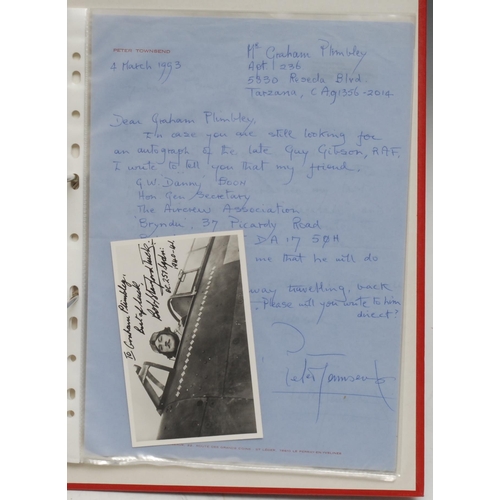 PETER TOWNSEND
4 March 1993
Mr Graham Plimbley
Apt 1036
5530 Reseda Blvd.
Tarzana, CA 91356-2014
Dear Graham Plimbley,
In case you are still looking for
an autograph of the late Guy Gibson, RAF,
I write to tell you that my friend
G.W. 'Danny' BOON
Hon. Gen. Secretary
The Aircrew Association
'Brynda', 37 Picardy Road
DA17 5QH.
me that he will do
away travelling, back
Please will you write to him
direct?
Peter Townsend
To Graham Plimbley.
Best of luck
Bob Stanford Tuck